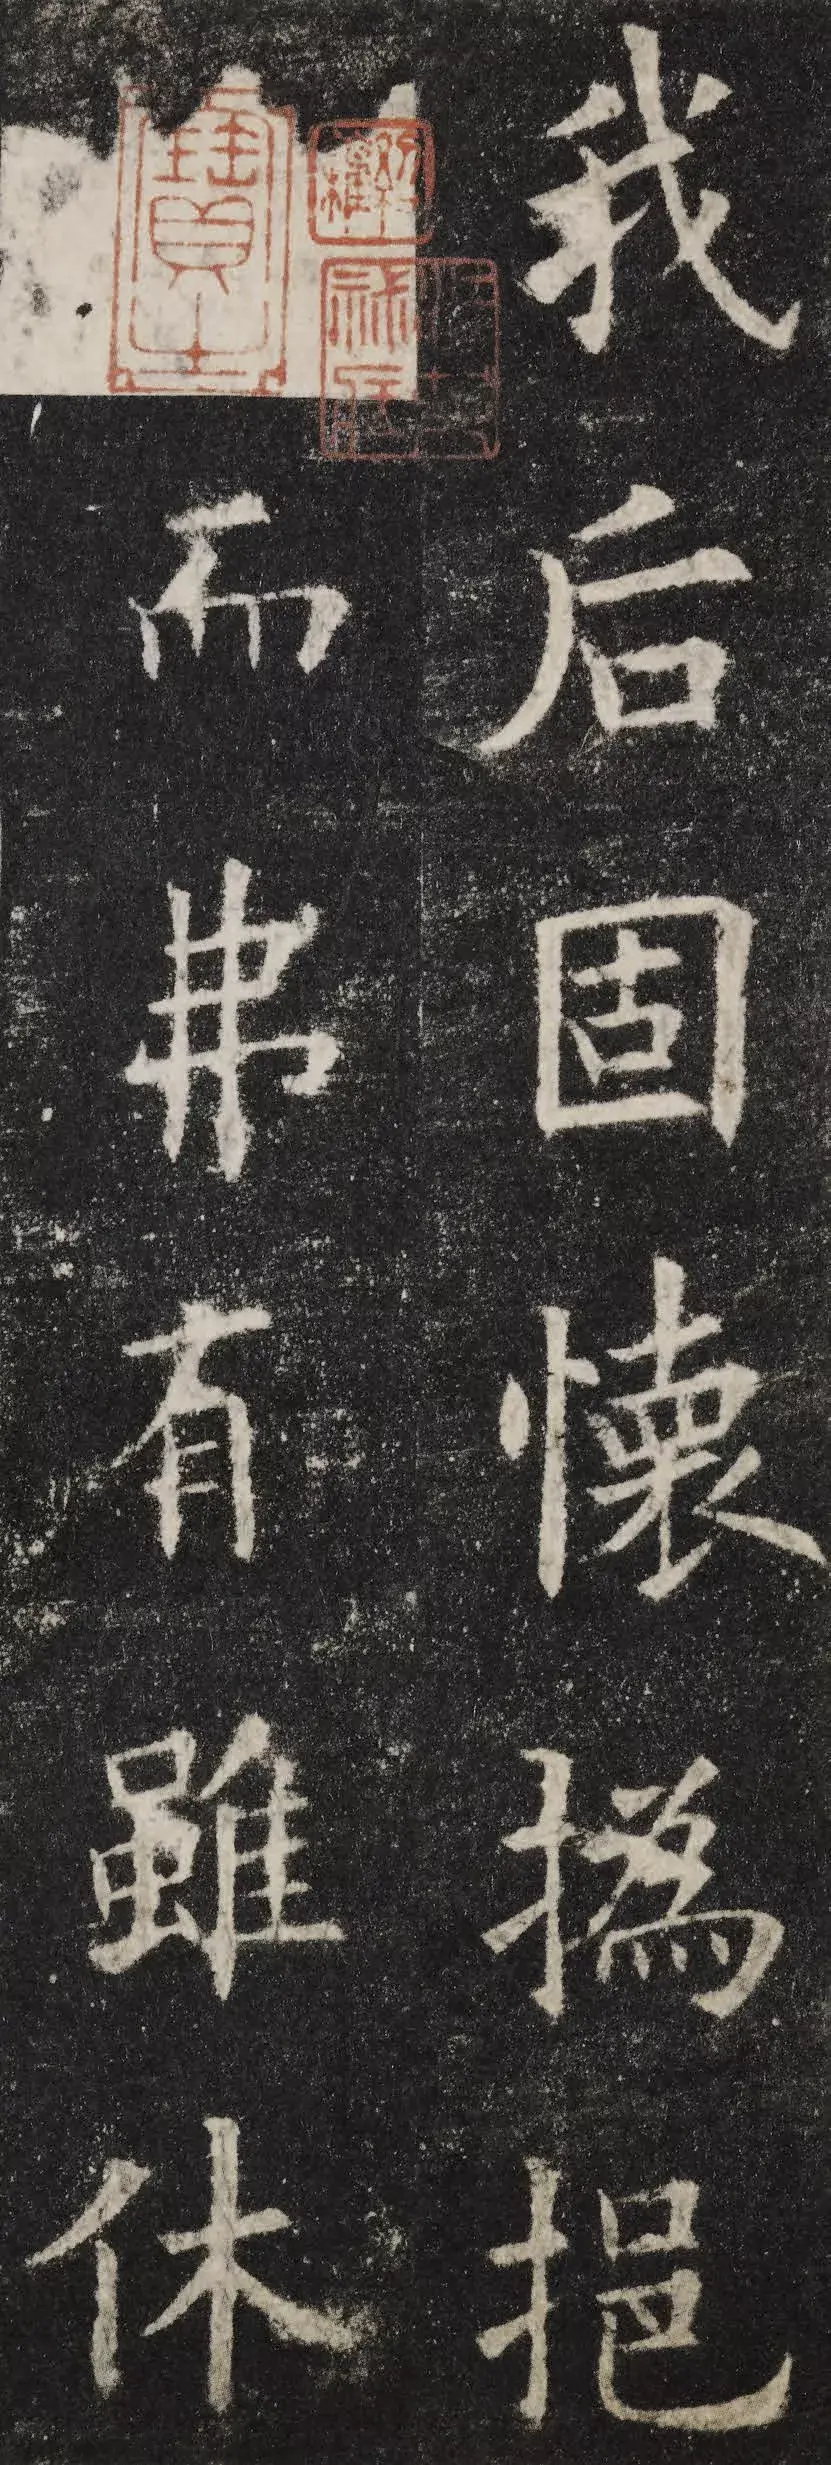 我后固懷撝挹
而弗有雖休